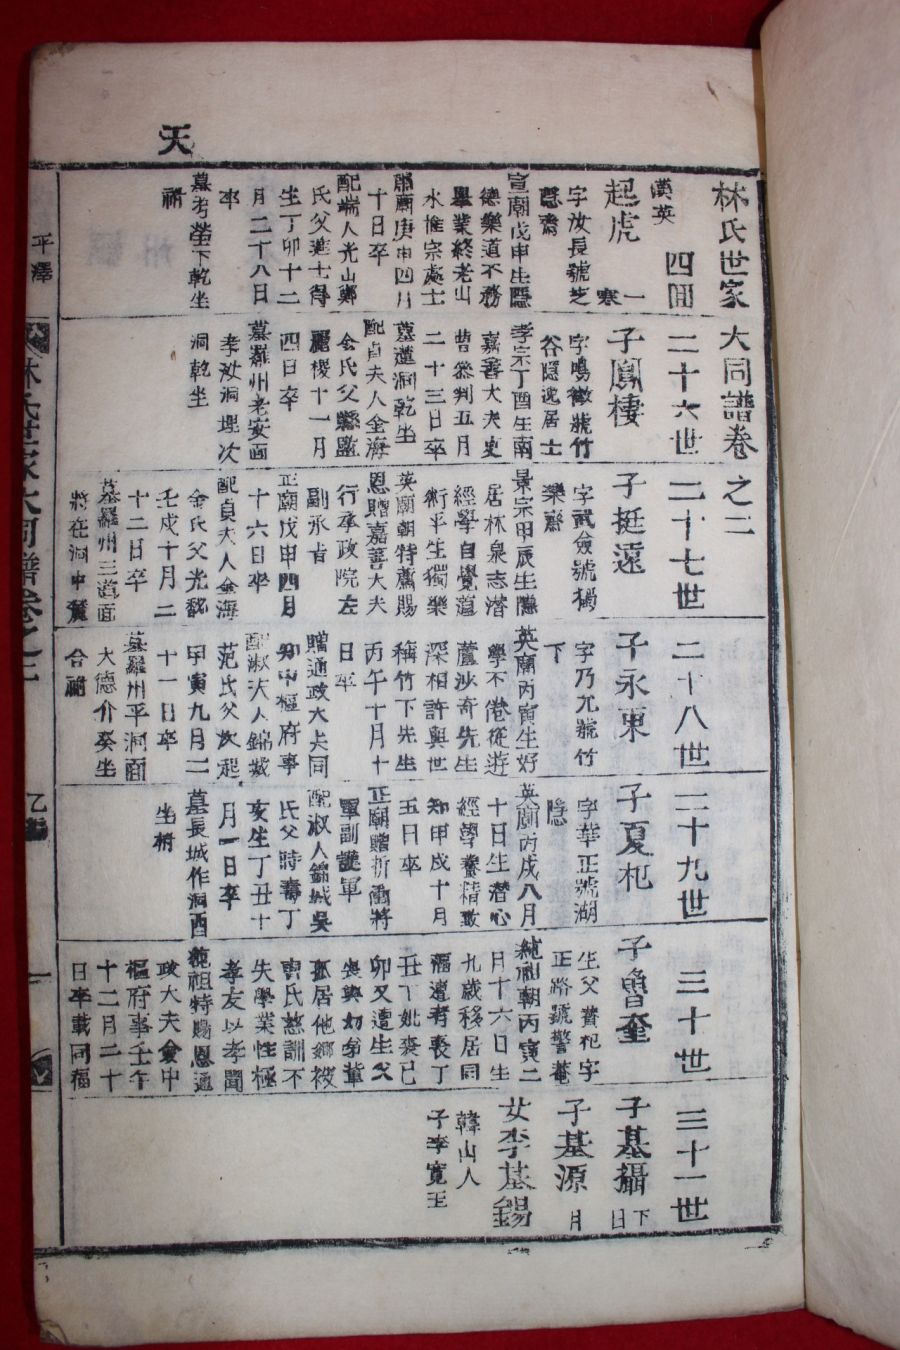 天
林氏世家大同譜卷之二
四囬
二十六世
二十七世
二十八世
二十九世
三十世
三十一世
漢英
起虎
一
寒
字汝長號芝
隱齋
宣廟戊申生隱
德樂道不務
擧業終老山
水惟宗處士
庚申四月
十日卒
配端人光山鄭
氏父進士得
生丁卯十二
月二十八日
卒
墓考塋下乾坐
祔
子鳳棲
字鳴徵號竹
谷隱逸居士
孝宗丁酉生南
嘉善大夫吏
曹叅判五月
二十三日卒
墓蓮洞乾坐
配貞夫人金海
金氏父縣監
麗稷十一月
四日卒
墓羅州老安面
孝汝洞埋次
洞乾坐
子挺遠
字武僉號獨
樂齋
景宗甲辰生隱
居林泉志潛
經學自覺蘊
術平生獨樂
英廟朝特薦賜
恩贈嘉善大夫
行承政院左
副承旨
正廟戊申四月
十六日卒
配貞夫人金海
金氏父光
壬戌十月二
十二日卒
墓羅州三道面
將在洞中
子永東
字乃允號竹
下
英廟丙寅生好
學不倦從遊
蘆沙奇先生
深相許與世
稱竹下先生
丙午十月十
日卒
贈通政大夫同
知中樞府事
配淑夫人錦城
范氏父次起
甲寅九月二
十一日卒
墓羅州平洞面
大德介癸坐
合祔
子夏杞
字華正號湖
隱
英廟丙戌八月
十日生潛心
經學養精致
知甲戌十月
五日卒
正廟贈折衝將
軍副護軍
配淑人錦城吳
氏父時壽丁
亥生丁丑十
月一日卒
墓長城作洞酉
坐祔
子魯奎
生父賛杞字
正路號警菴
純祖朝丙寅二
月十六日生
九歲移居同
福遭考喪丁
丑丁妣喪己
卯又遭生父
喪與幼弟輩
孤居他鄉被
曺氏慈訓不
失學業性極
孝友以孝聞
純祖特賜恩通
政大夫僉中
樞府事壬午
十二月二十
日卒載同福
子基攝
下
日
子基源
月
女李基錫
韓山人
子李寬王
平澤
林氏世家大同譜卷之二
乙
一